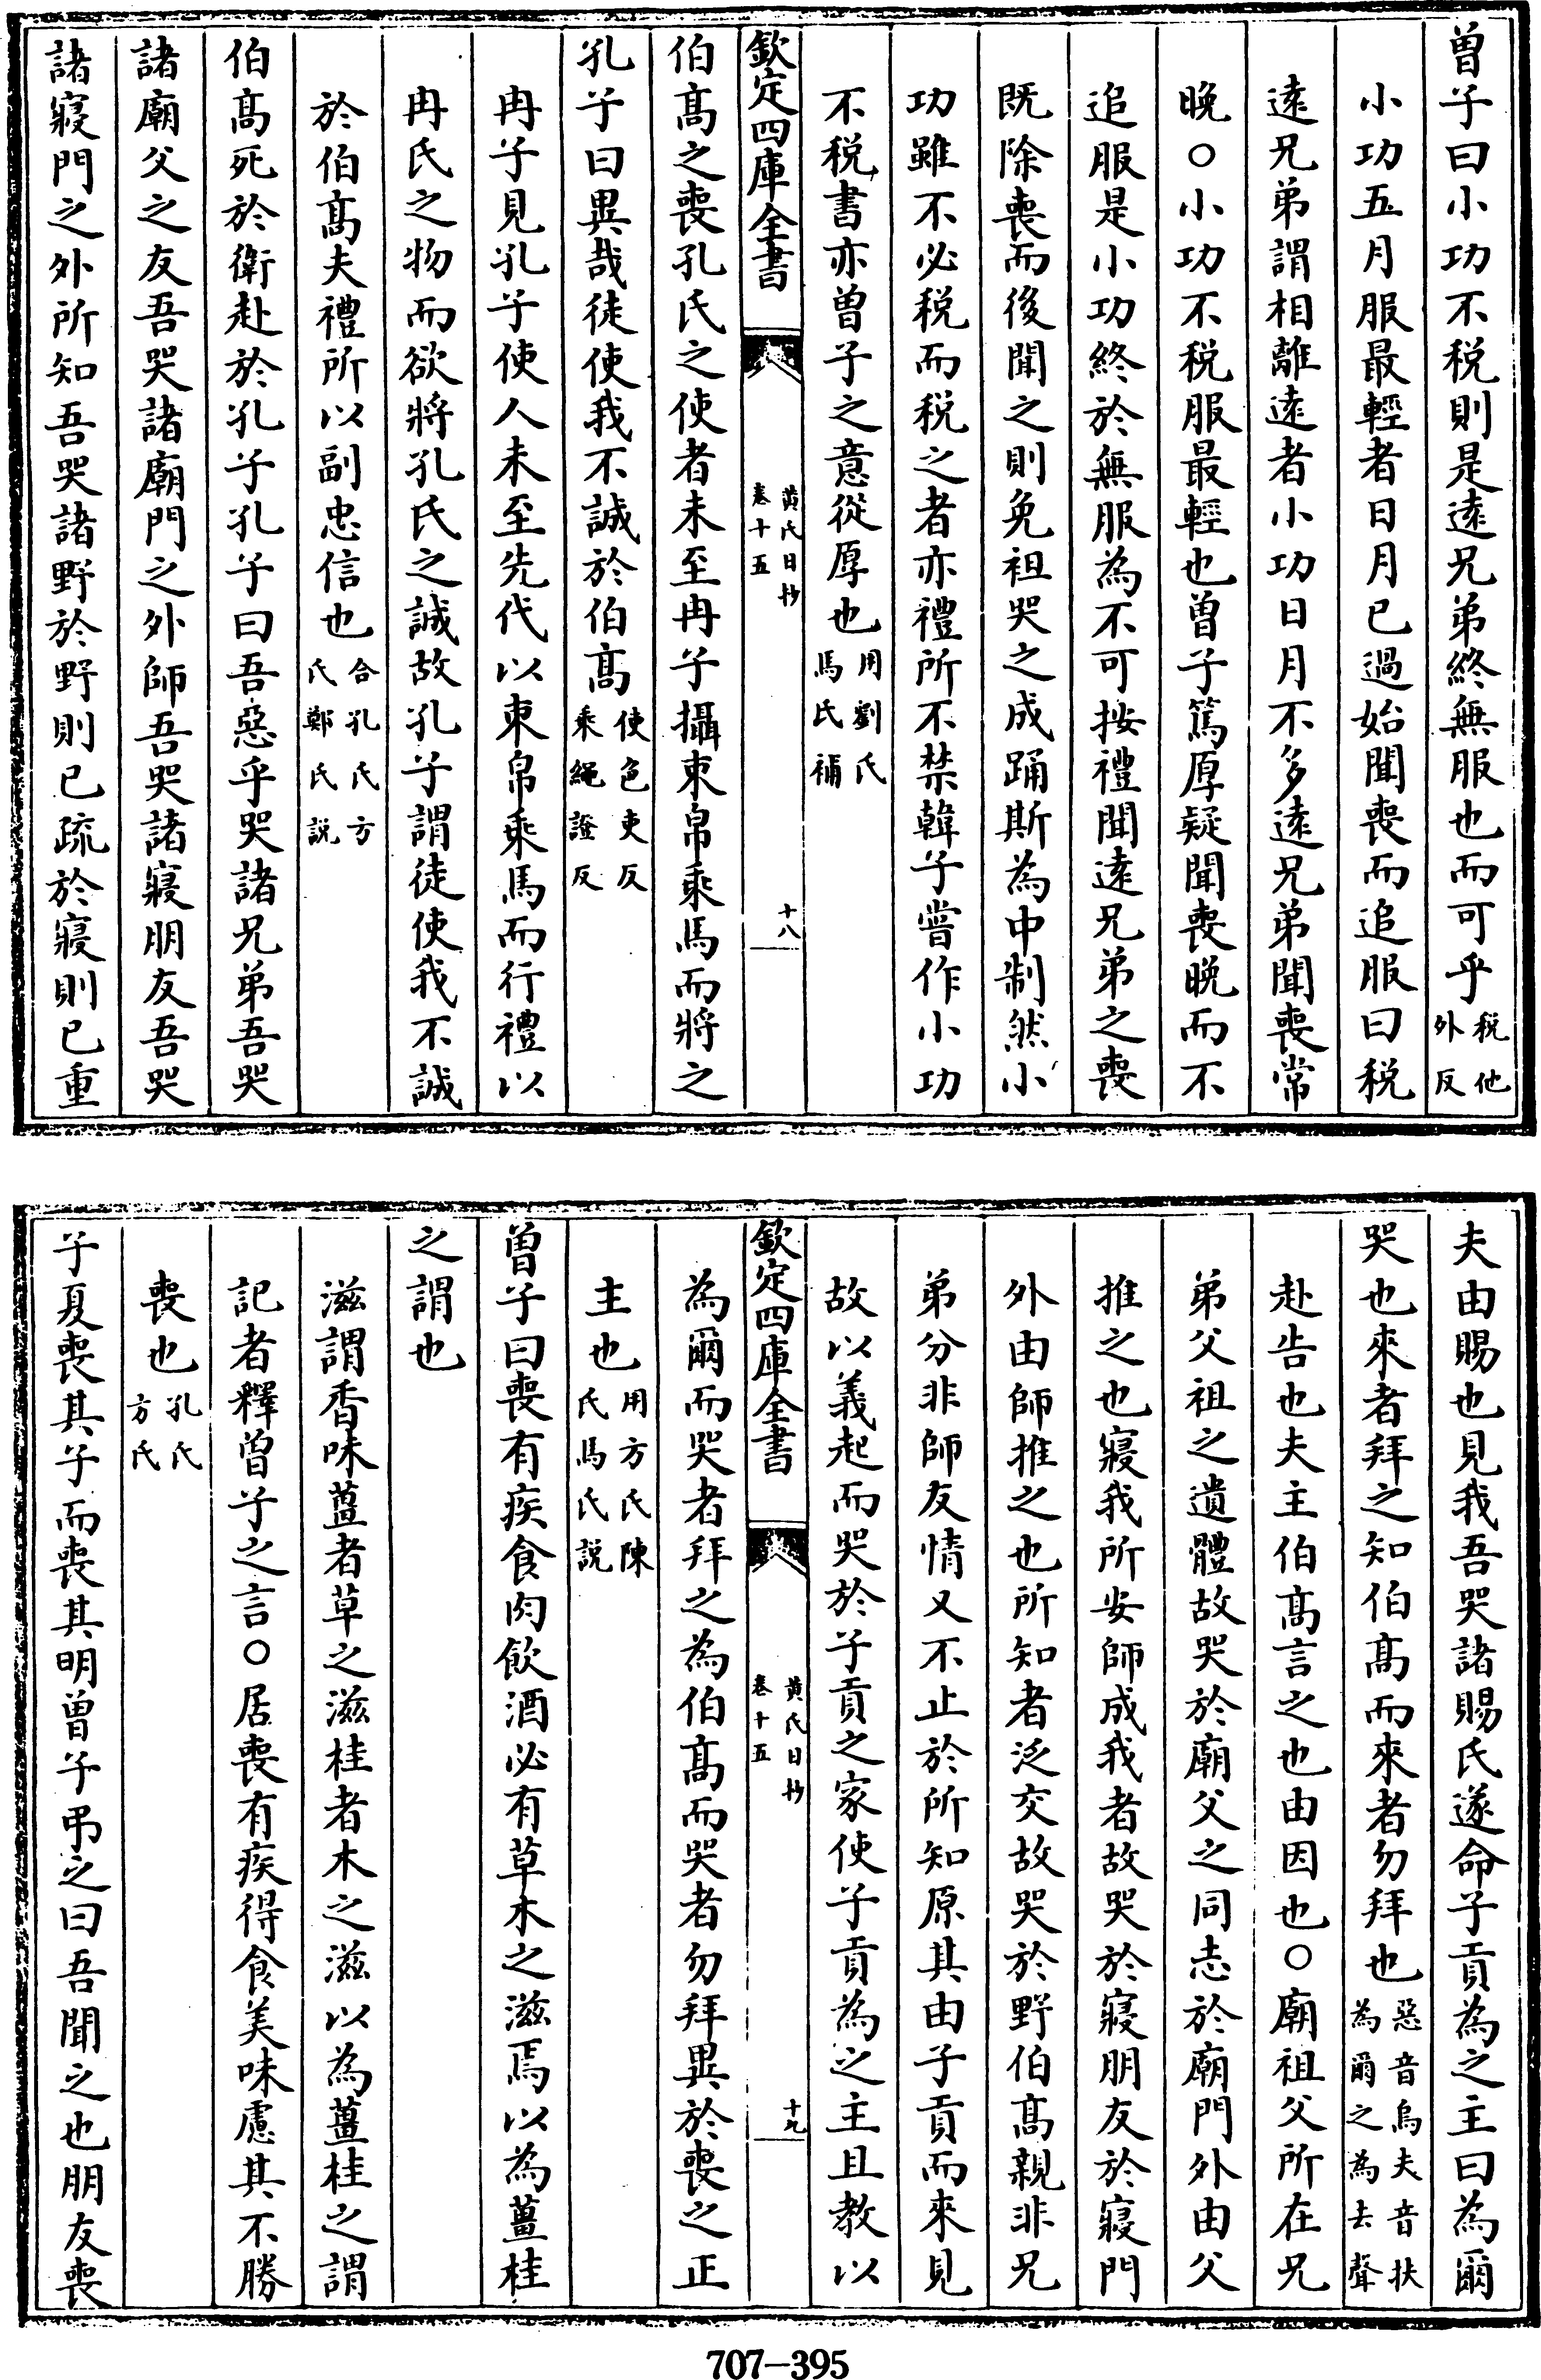 曽子曰小功不税則是逺兄弟終無服也而可乎税他外反
小功五月服最輕者日月已過始聞喪而追服曰税
逺兄弟謂相離逺者小功日月不多逺兄弟聞喪常
晚○小功不税服最輕也曽子篤厚疑聞喪晚而不
追服是小功終於無服為不可按禮聞逺兄弟之喪
既除喪而後聞之則免袒哭之成踊斯為中制然小
功雖不必税而税之者亦禮所不禁韓子嘗作小功
不税書亦曽子之意從厚也用劉氏馬氏補
欽定四庫全書
黄氏日抄
卷十五
十八
伯髙之喪孔氏之使者未至冉子攝束帛乗馬而將之
孔子曰異哉徒使我不誠於伯髙使色吏反乗繩證反
冉子見孔子使人未至先代以束帛乗馬而行禮以
冉氏之物而欲將孔氏之誠故孔子謂徒使我不誠
於伯髙夫禮所以副忠信也合孔氏方氏鄭氏説
伯髙死於衛赴於孔子孔子曰吾惡乎哭諸兄弟吾哭
諸廟父之友吾哭諸廟門之外師吾哭諸寢朋友吾哭
諸寢門之外所知吾哭諸野於野則已疏於寢則已重
夫由賜也見我吾哭諸賜氏遂命子貢為之主曰為爾
哭也來者拜之知伯髙而來者勿拜也惡音烏夫音扶為爾之為去聲
赴告也夫主伯髙言之也由因也○廟祖父所在兄
弟父祖之遺體故哭於廟父之同志於廟門外由父
推之也寢我所安師成我者故哭於寢朋友於寢門
外由師推之也所知者泛交故哭於野伯髙親非兄
弟分非師友情又不止於所知原其由子貢而來見
故以義起而哭於子貢之家使子貢為之主且教以
欽定四庫全書
黄氏日抄
卷十五
十九
為爾而哭者拜之為伯髙而哭者勿拜異於喪之正
主也用方氏陳氏馬氏説
曽子曰喪有疾食肉飲酒必有草木之滋焉以為薑桂
之謂也
滋謂香味薑者草之滋桂者木之滋以為薑桂之謂
記者釋曽子之言○居喪有疾得食美味慮其不勝
喪也孔氏方氏
子夏喪其子而喪其明曽子弔之曰吾聞之也朋友喪
707-395